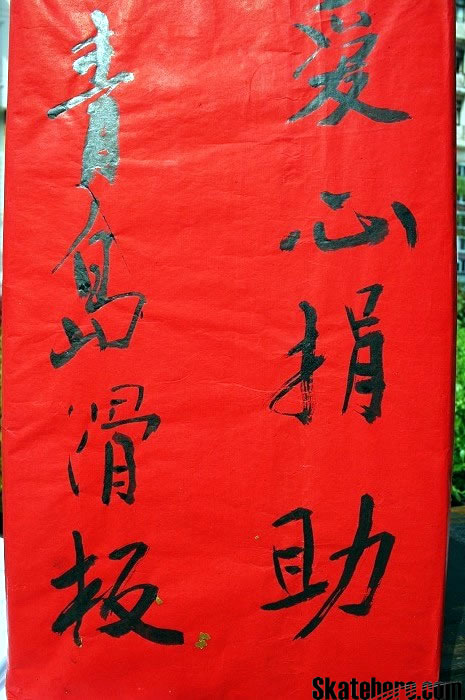 爱心捐助
青岛滑板
Skatehero.com